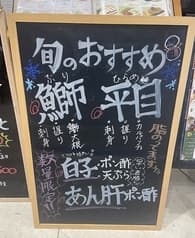 旬のおすすめ
ぶり
鰤
刺身
握り
鰤大根
ひらめ
平目
刺身
握り
カルパッチョ
脂のってます
数量限定!!
白子
ポン酢
天ぷら
あん肝ポン酢